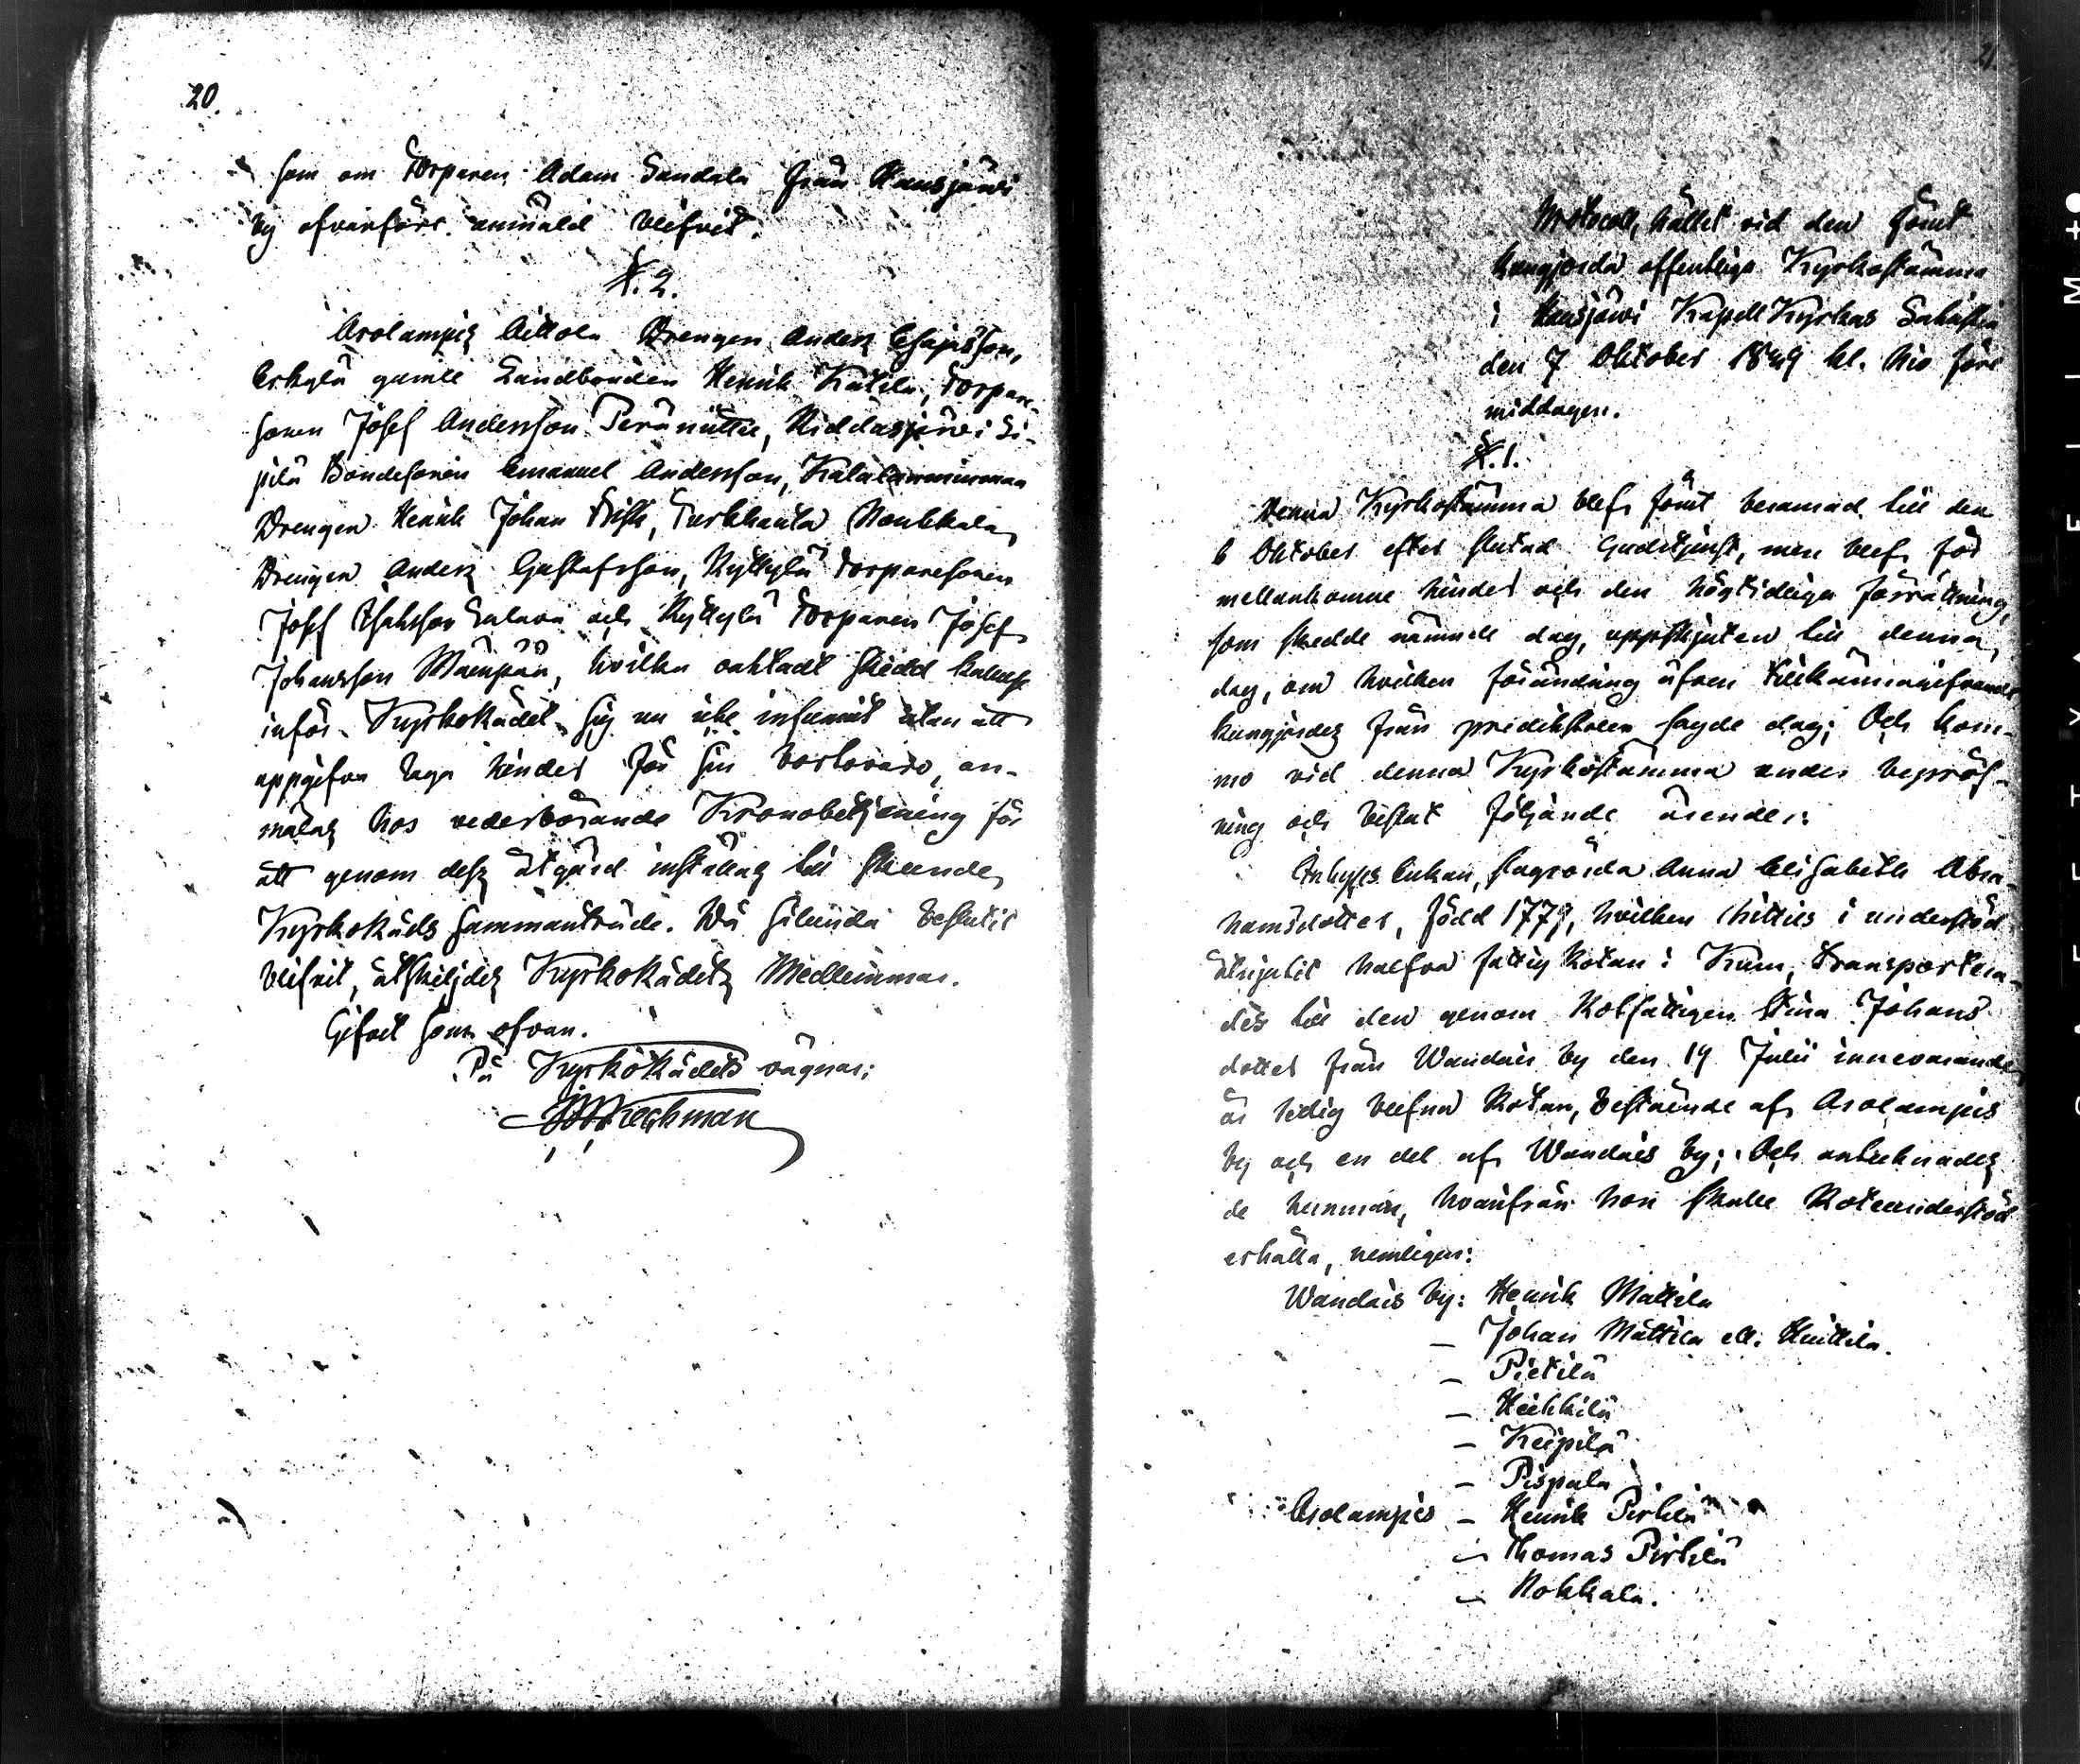 20.
som om Torparen Adam Sandala från Hausjärvi
by ofvanföre anmäld blifvit.
§. 2.
Arolampis Aittola Drengen Anders Esajasson,
Erkylä gamle Landbonden Henrik Kätilä, Torpare-
sonen Josef Andersson Peräniittu, Riddasjärvi Si-
pilä Bondesonen Emanuel Andersson, Karalammimaa
Drengen Henrik Johan Frisk, Turkhauta Noukkala
Drengen Anders Gustafsson, Kylkylä Torparesonen
Josef Isaksson Salava och Kylkylä Torparen Josef
Johansson Mäenpää, hvilka oaktadt skedd kallelse
inför Kyrkorådet sig nu icke infunnit utan att
uppgifva laga hinder för sin bortovaro, an-
mälas hos vederbörande Kronobetjening för
att genom dess åtgärd inställas till skeende
Kyrkoråds sammanträde. Då sålunda beslutit
blifvit, åtskiljdes Kyrkorådets Medlemmar.
Gifvit som ofvan.
På Kyrkorådets vägnar:
21
Protocoll, hållet vid den förut
kungjorda offentliga Kyrkostämma
i Hausjärvi Kapell Kyrkas Sakristia
den 7 Oktober 1849 kl. Nio före
middagen.
§. 1.
Denna Kyrkostämma blef förut beramad till den
6 Oktober efter slutad Gudstjenst, men blef för
mellankomne hinder och den högtidliga förrättning,
som skedde nämnde dag, uppskjuten till denna
dag, om hvilken förändring äfven tillkännagifvande
kungjordes från predikstolen sagde dag; Och kom-
mo vid denna Kyrkostämma under bepröf-
ning och beslut följande ärender:
Enkan, Anna Elisabeth Abra-
hamsdotter, född 1779, hvilken hittils i understöd
åtnjutit halfva fattig Rotan i Kum, transportera-
des till den genom Rotfattigen Stina Johans-
dotter från Wandais by den 19 Julii innevarande
år ledig blefna Rotan, bestående af Arolampis
by och en del af Wandais by; Och antecknades
de hemman, hvarifrån hon skulle Roteunderstöd
erhålla, nemligen:
Wandais by: Henrik Mattila
— Johan Mattila ell. Knittila.
— Pietilä
— Heikkilä
— Keipilä
— Pispala
Arolampis — Henrik Pirkilä
— Thomas Pirkilä
— Nokkala.